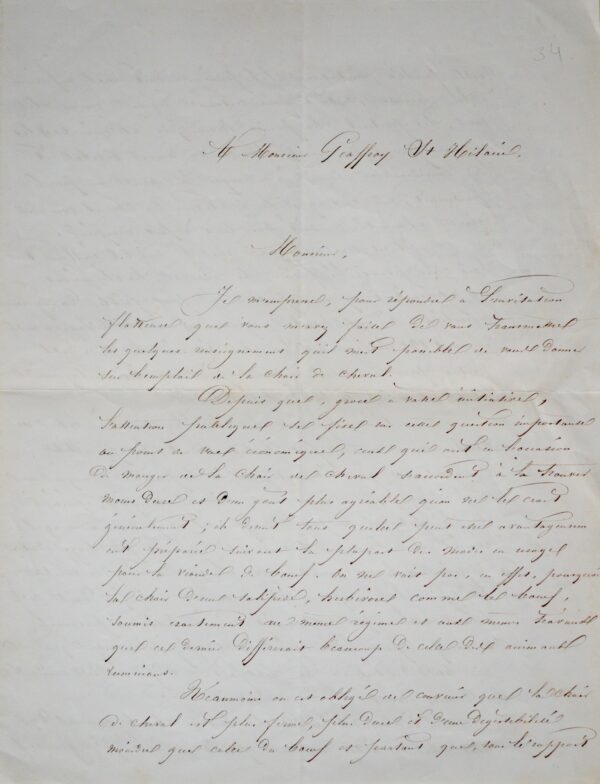 34.
A Monsieur Geoffroy St Hilaire.
Monsieur,
Je m'empresse, pour réponse à l'invitation
flatteuse que vous m'avez faite de vous transmettre
les quelques renseignements qu'il m'est possible de vous donner
sur l'emploi de la chair de cheval.
Depuis que, grâce à votre initiative,
l'attention publique s'est fixée sur cette question importante
au point de vue économique, ceux qui ont eu l'occasion
de manger de la chair de cheval s'accordent à la trouver
moins dure et d'un goût plus agréable qu'on ne le croit
généralement ; ils disent tous qu'elle peut être avantageusem
ent préparée suivant la plupart des modes en usage
pour la viande de boeuf. On ne voit pas, en effet, pourquoi
la chair de herbivore comme le boeuf,
soumis exactement au même régime et aux mêmes travaux
que ce dernier différerait beaucoup de celle de
ruminant.
Néanmoins on est obligé de convenir que la chair
de cheval est plus ferme, plus dure et d'une digestibilité
moindre que celle du boeuf et partant que, sous le rapport